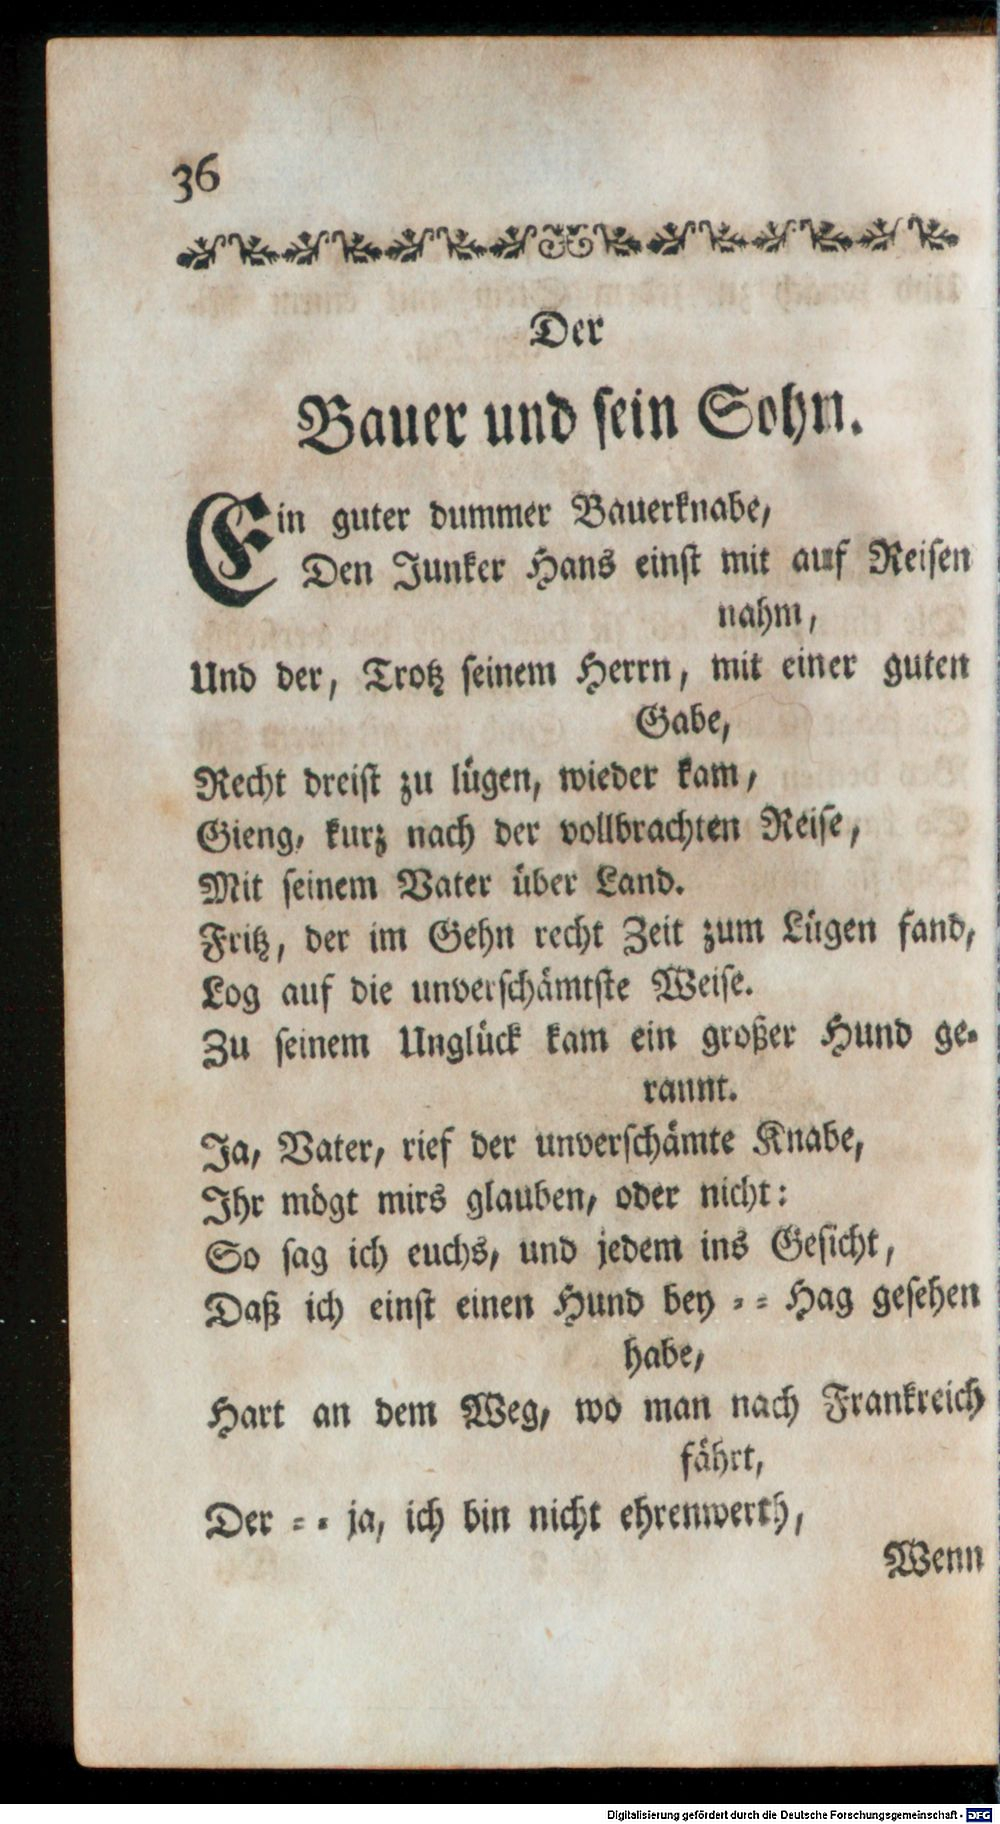 36
Der
Bauer und sein Sohn.
Ein guter dummer Bauerknabe,
Den Junker Hans einst mit auf Reisen
nahm,
Und der, Trotz seinem Herrn, mit einer guten
Gabe,
Recht dreist zu lügen, wieder kam,
Gieng, kurz nach der vollbrachten Reise,
Mit seinem Vater über Land.
Fritz, der im Gehn recht Zeit zum Lügen fand,
Log auf die unverschämtste Weise.
Zu seinem Unglück kam ein großer Hund ge-
rannt.
Ja, Vater, rief der unverschämte Knabe,
Ihr mögt mirs glauben, oder nicht:
So sag ich euchs, und jedem ins Gesicht,
Daß ich einst einen Hund bey - - Hag gesehen
habe,
Hart an dem Weg, wo man nach Frankreich
fährt,
Der - - ja, ich bin nicht ehrenwerth,
Wenn
Digitalisierung gefördert durch die Deutsche Forschungsgemeinschaft - DFG